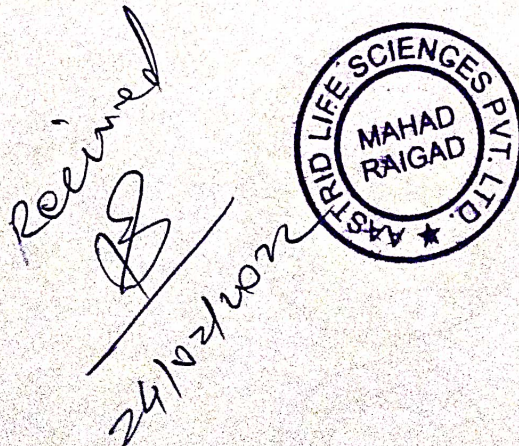 Received
24/02/2022
AASTRID LIFE SCIENGES PVT. LTD. ★
MAHAD
RAIGAD